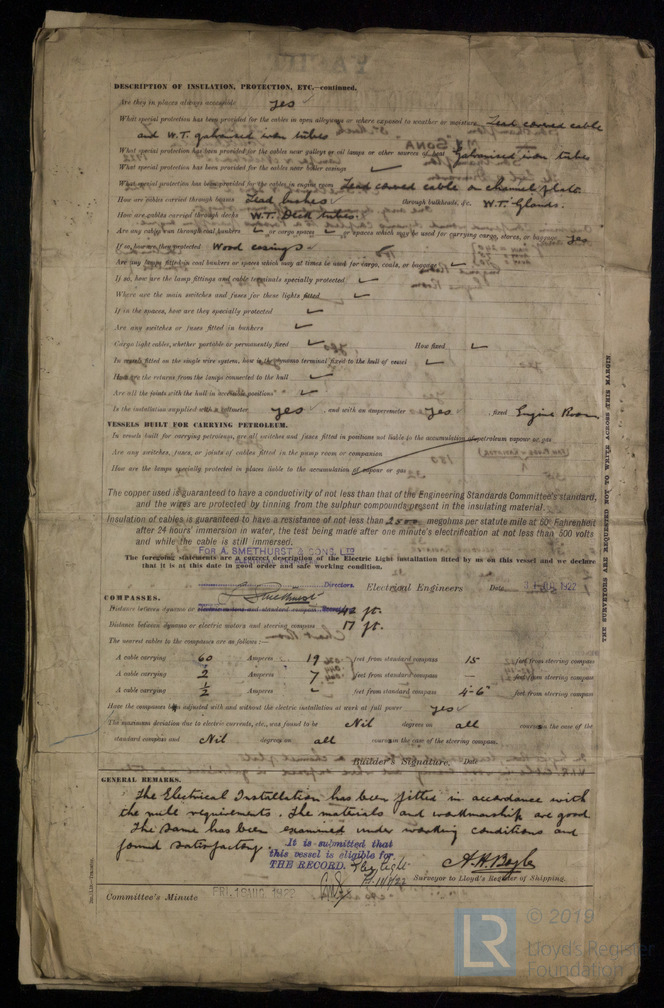 DESCRIPTION OF INSULATION, PROTECTION, ETC.—continued.
Are they in places always accessible yes ✓
What special protection has been provided for the cables in open alleyways or where exposed to weather or moisture Lead covered cable
and W.T. galvanised iron tubes
What special protection has been provided for the cables near galleys or oil lamps or other sources of heat Galvanised iron tubes
What special protection has been provided for the cables near boiler casings ✓
What special protection has been provided for the cables in engine room Lead covered cable on channel plate.
How are cables carried through beams Lead bushes ✓ through bulkheads, &c. W.T. Glands.
How are cables carried through decks W.T. Deck tubes.
Are any cables run through coal bunkers ✓ or cargo spaces ✓ or spaces which may be used for carrying cargo, stores, or baggage Yes
If so, how are they protected Wood casings ✓
Are any lamps fitted in coal bunkers or spaces which may at times be used for cargo, coals, or baggage ✓
If so, how are the lamp fittings and cable terminals specially protected ✓
Where are the main switches and fuses for these lights fitted ✓
If in the spaces, how are they specially protected ✓
Are any switches or fuses fitted in bunkers ✓
Cargo light cables, whether portable or permanently fixed ✓ How fixed ✓
In vessels fitted on the single wire system, how is the dynamo terminal fixed to the hull of vessel ✓
How are the returns from the lamps connected to the hull ✓
Are all the joints with the hull in accessible positions ✓
Is the installation supplied with a voltmeter yes ✓, and with an amperemeter Yes ✓, fixed Engine Room
VESSELS BUILT FOR CARRYING PETROLEUM.
In vessels built for carrying petroleum, are all switches and fuses fitted in positions not liable to the accumulation of petroleum vapour or gas
Are any switches, fuses, or joints of cables fitted in the pump room or companion
How are the lamps specially protected in places liable to the accumulation of vapour or gas
The copper used is guaranteed to have a conductivity of not less than that of the Engineering Standards Committee's standard,
and the wires are protected by tinning from the sulphur compounds present in the insulating material.
Insulation of cables is guaranteed to have a resistance of not less than 2500 megohms per statute mile at 60° Fahrenheit
after 24 hours' immersion in water, the test being made after one minute's electrification at not less than 500 volts
and while the cable is still immersed.
FOR A. SMETHURST & SONS, LTD
The foregoing statements are a correct description of the Electric Light installation fitted by us on this vessel and we declare
that it is at this date in good order and safe working condition.
Smethurst Directors. Electrical Engineers Date 1922
COMPASSES.
Distance between dynamo or electric motors and standard compass 42 ft.
Distance between dynamo or electric motors and steering compass 17 ft.
The nearest cables to the compasses are as follows:—
A cable carrying 60 Amperes 19 feet from standard compass 15 feet from steering compass
A cable carrying 2 Amperes 7 feet from standard compass — feet from steering compass
A cable carrying ½ Amperes ✓ feet from standard compass 4-6" feet from steering compass
Have the compasses been adjusted with and without the electric installation at work at full power yes ✓
The maximum deviation due to electric currents, etc., was found to be Nil degrees on all courses in the case of the
standard compass and Nil degrees on all courses in the case of the steering compass.
Builder's Signature. Date
GENERAL REMARKS.
The Electrical Installation has been fitted in accordance with
the rule requirements. The materials and workmanship are good
The same has been examined under working conditions and
found satisfactory.
It is submitted that
this vessel is eligible for
THE RECORD. Elec Light
A.H. Boyle
Surveyor to Lloyd's Register of Shipping.
Committee's Minute FRI. 18 AUG 1922
THE SURVEYORS ARE REQUESTED NOT TO WRITE ACROSS THIS MARGIN.
LR
© 2019
Lloyd's Register
Foundation